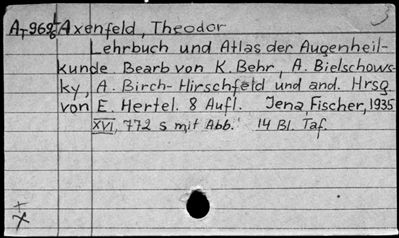 A-968 Axenfeld, Theodor
Lehrbuch und Atlas der Augenheil-
kunde Bearb von K. Behr, A. Bielschows-
ky, A. Birch-Hirschfeld und and. Hrsg
von E. Hertel. 8 Aufl. Jena, Fischer, 1935
XVI, 772 s mit Abb. 14 Bl. Taf.